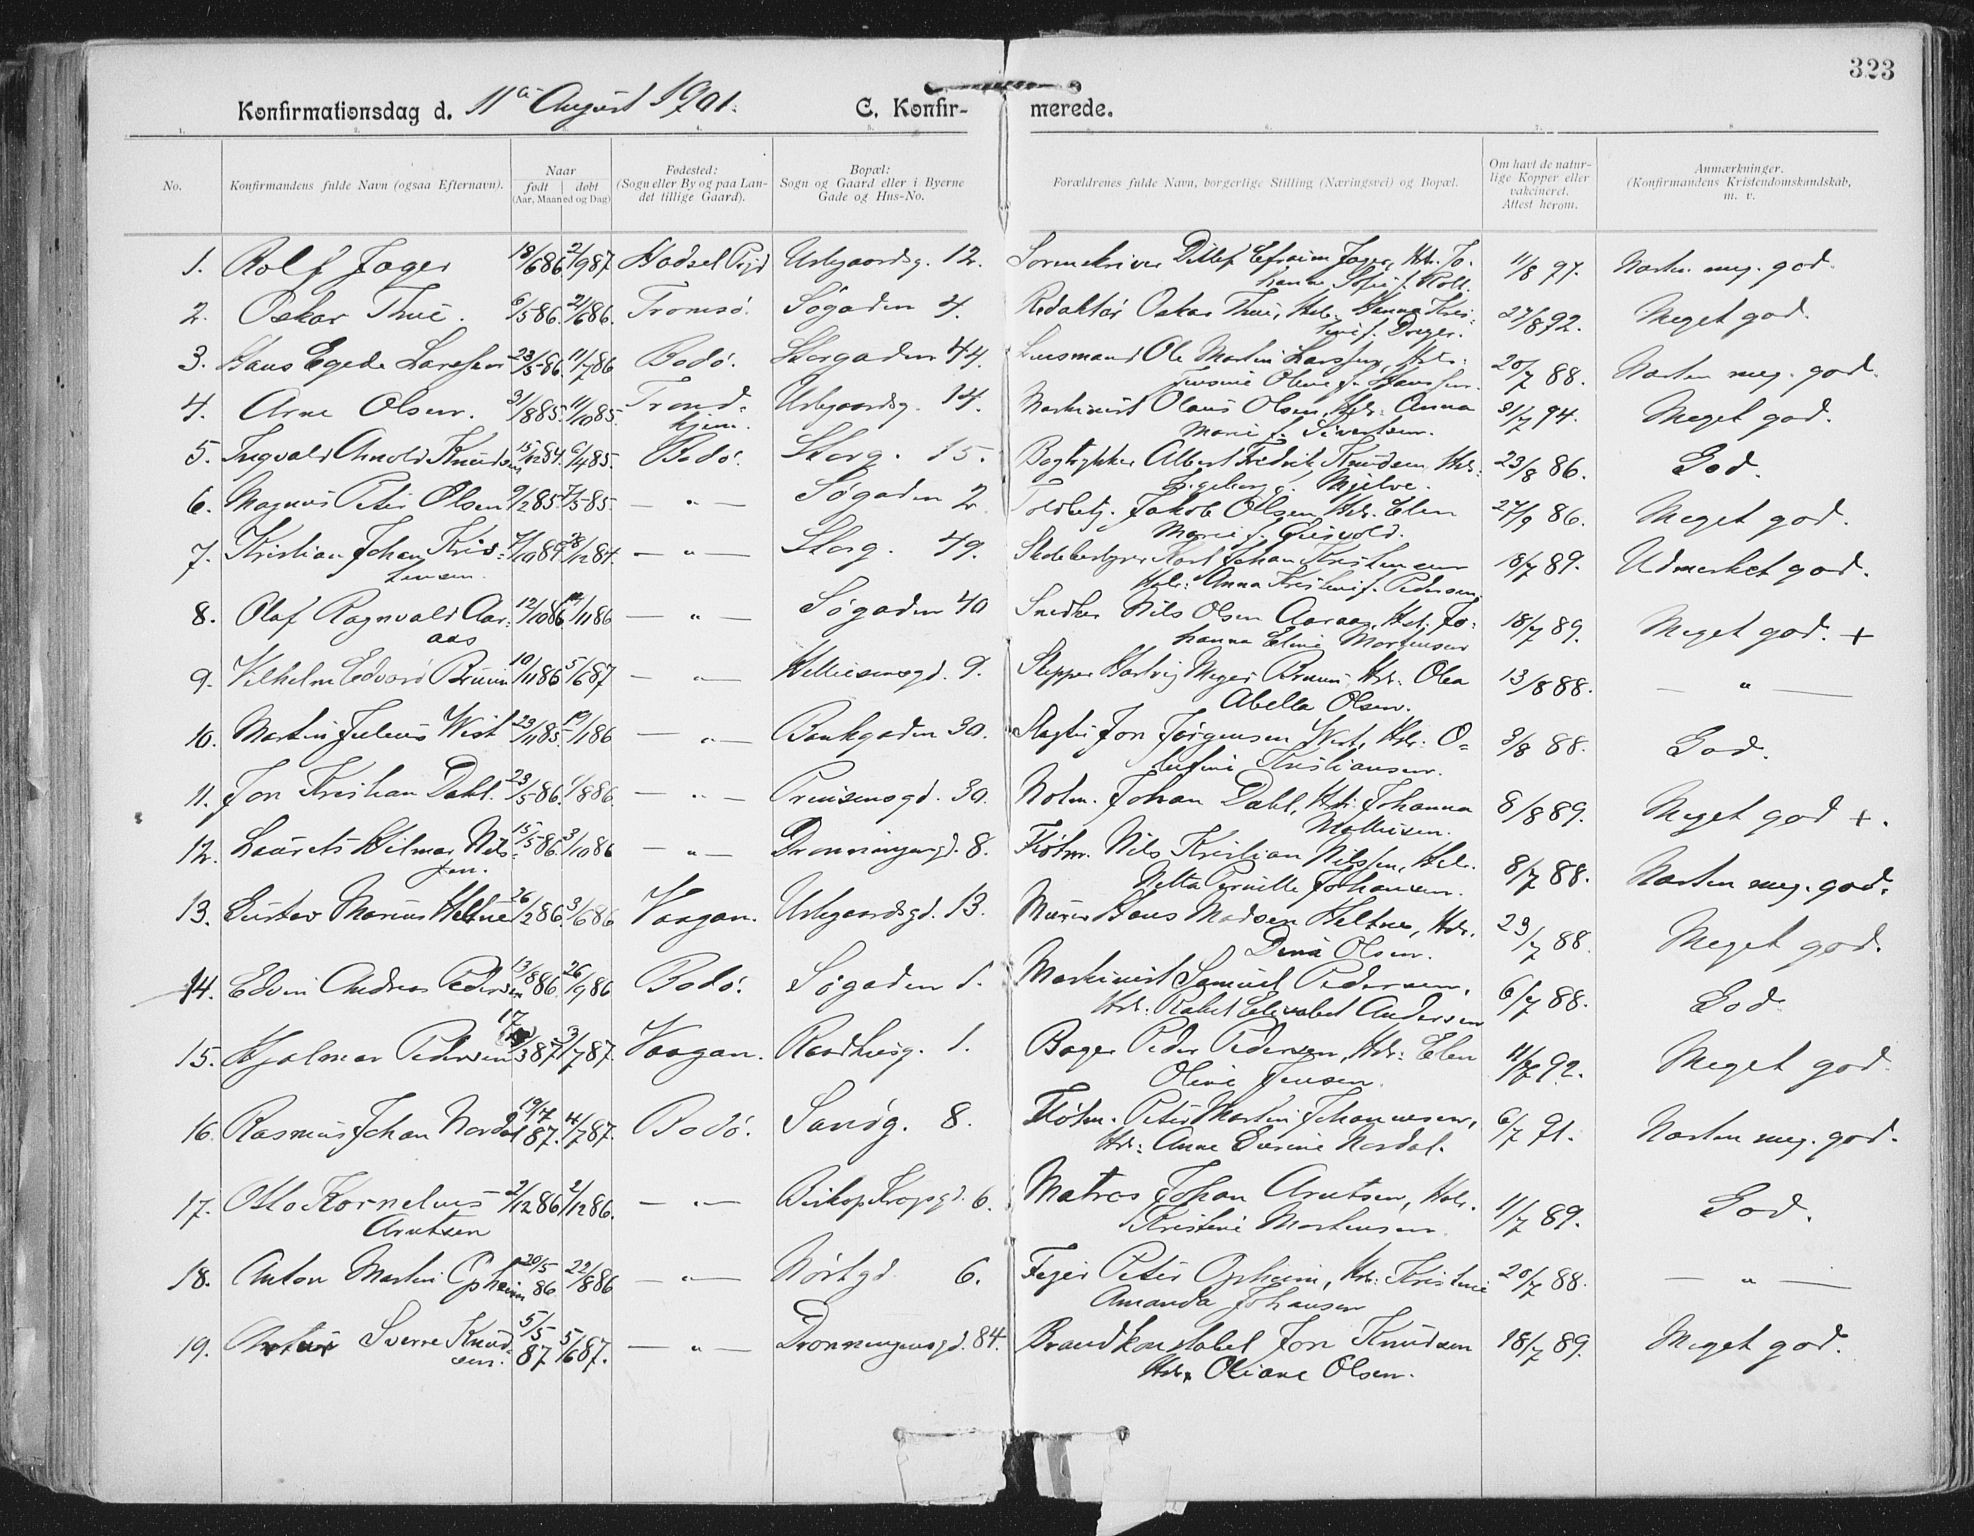 323
Konfirmationsdag d. 11te August 1901. C. Konfir- merede.
1. 2. 3. 4. 5. 6. 7. 8.
No. Konfirmandens fulde Navn (ogsaa Efternavn). Naar født døbt (Aar, Maaned og Dag) Fødested: (Sogn eller By og paa Landet tillige Gaard). Bopæl: Sogn og Gaard eller i Byerne Gade og Hus-No. Forældrenes fulde Navn, borgerlige Stilling (Næringsvei) og Bopæl. Om havt de naturlige Kopper eller vakcineret. Attest herom. Anmærkninger. (Konfirmandens Kristendomskundskab, m. v.
1. Rolf Jager 18/6 86 2/9 87 Hadsel Pgjd 12. Sorenskriver Ditlef Efraim Jager, Hst. Jo- 11/8 97. Næsten meg. god.
hanna Sofie f. Koll.
2. Oskar Thue. 6/5 86. 2/6 86. Tromsø. Søgaden 4. Redaktør Oskar Thue, Hst. Hanna Kris- 27/8 92. Meget god.
tine f. Dreyer.
3. Hans Egede Larssen 23/5 86. 11/7 86 Bodø. Storgaden 44. Lensmand Ole Martin Larssen, Hst: 20/7 88. Næsten meg. god.
Oline f. Hanssen.
4. Arne Olsen. 31/8 85. 11/10 85. Trond- 14. Maskinist Olaus Olsen, Hst: Anna 31/7 94. Meget god.
hjem. Marie f. Sivertsen.
5. Ingvald Arnold Knudsen 15/12 84. 6/4 85. Bodø. Storg. 15. Bogtrykker Albert Fredrik Knudsen, Hst: 23/8 86. God.
f. Mjelve.
6. Magnus Peter Olsen 9/2 85. 7/5 85. — " — Søgaden 2. Toldbetj. Jakob Olsen, Hst. Elen 27/9 86. Meget god.
Marie f.
7. Kristian Johan Kris- 28/12 84. — " — Storg. 49. Skolebestyrer Karl Johan Kristensen 18/7 89. Udmerket god.
tensen. Hst: Anna Kristine f. Pedersen.
8. Olaf Ragnvald Aar- 12/10 86 /11 86 — " — Søgaden 40 Snedker Nils Olsen Aaraas, Hst. Jo- 18/7 89. Meget god. +
aas hanna Eline Mortensen
9. Vilhelm Edvard Bruun 10/11 86 5/6 87 — " — 9. Slepper Hartvig Meyer Bruun, Hst: Olea 13/8 88. — " —
Abella Olsen.
10. Martin Julius Wist 23/11 85. /1 86 — " — Bankgaden 30. Slagter Jon Jørgensen Wist, Hst: O- 3/8 88. God.
Kristiansen.
11. Jon Kristian Dahl. 23/5 86. 1/8 86. — " — Prinsensgd. 30. Johan Dahl, Hst: Johanna 8/8 89. Meget god +.
Mathisen.
12. Laurets Hilmar Nils- 15/5 86. 3/10 86 — " — Dronningensgd. 8. Fløtm. Nils Kristian Nilssen, Hst. 8/7 88. Næsten meg. god.
sen. Pernille Johansen.
13. Gustav Marius Heltne 26/2 86. 3/6 86 Vaagan. 13. Murer Hans Madsen Heltne, Hst. 23/7 88. Meget god.
Dina Olsen.
14. Edvin Andreas Pedersen 13/8 86 26/9 86 Bodø. Søgaden Maskinist Samuel Pedersen, 6/7 88. God.
Hst: Rakel Elisabet Andersen
15. Hjalmar Pedersen 17/3 87 3/7 87. Vaagan. Raadhusg. 1. Bager Peder Pedersen, Hst: Elen 92. Meget god.
Oline Jensen.
16. Rasmus Johan Nordal 19/4 87. 4/7 87. Bodø. 8. Fløtm. Peter Martin Johannesen, 6/7 91. Næsten meg. god.
Hst: Anne Nordal.
17. Otto Kornelius 2/12 86 2/12 86. — " — Biskop Kropsgd. 6. Matros Johan Arntsen, Hst. 11/7 89. God.
Arntsen Kristine Mortensen
18. Anton Martin Opheim 20/5 86 22/8 86 — " — 6. Feier Peter Opheim, Hst: Kristine 20/7 88. — " —
Amanda Johansen
19. Sverre Knud- 5/5 87 5/6 87. — " — Dronningensgd. 84. Brandkonstabel Jon Knudsen 18/7 89. Meget god.
sen. Hst. Oliane Olsen.